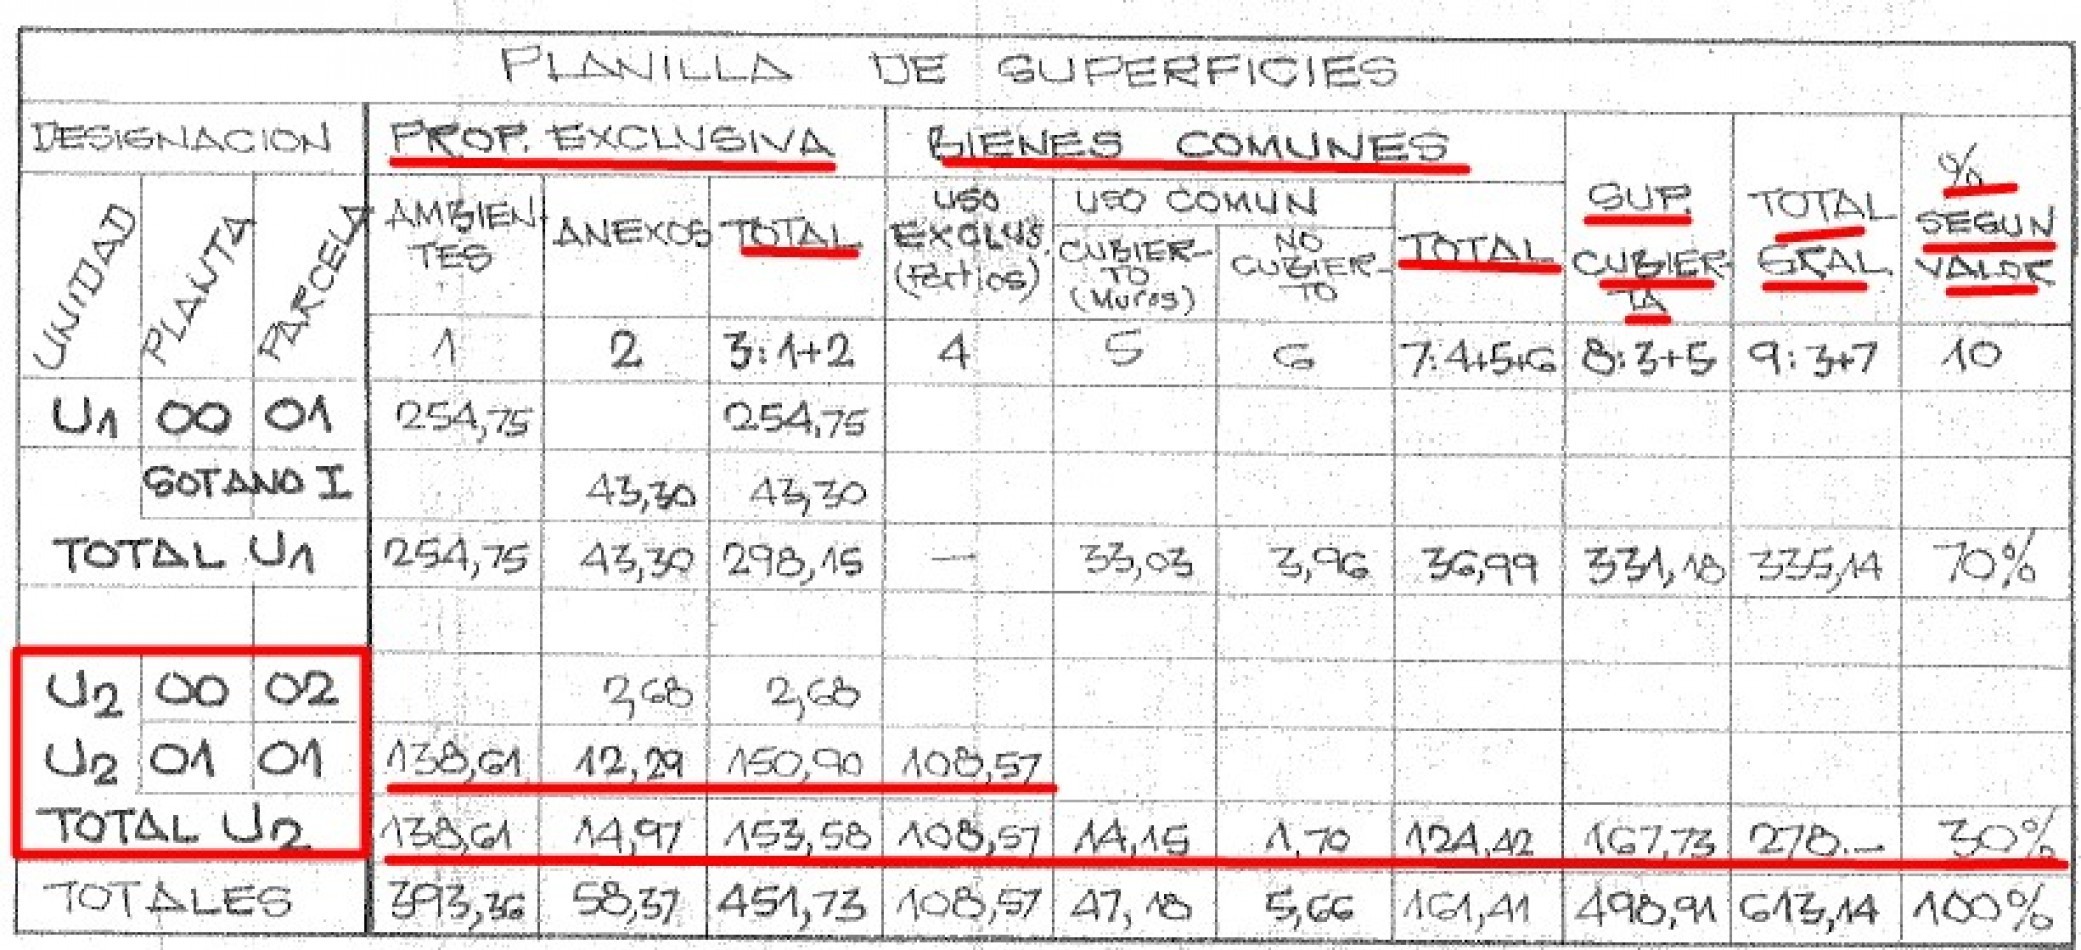 PLANILLA DE SUPERFICIES
DESIGNACION PROP. EXCLUSIVA BIENES COMUNES SUP. CUBIERTA TOTAL GRAL. % SEGUN VALOR
UNIDAD PLANTA PARCELA AMBIENTES ANEXOS TOTAL USO EXCLUS. (Patios) USO COMUN TOTAL
CUBIERTO (Muros) NO CUBIERTO
1 2 3:1+2 4 5 6 7:4+5+6 8:3+5 9:3+7 10
U1 00 01 254,75 254,75
SOTANO I 43,30 43,30
TOTAL U1 254,75 43,30 298,15 — 33,03 3,96 36,99 331,18 335,14 70%
U2 00 02 2,68 2,68
U2 01 01 138,61 12,29 150,90 108,57
TOTAL U2 138,61 14,97 153,58 108,57 14,15 1,70 124,42 167,73 278.— 30%
TOTALES 393,36 58,37 451,73 108,57 47,18 5,66 161,41 498,91 613,14 100%